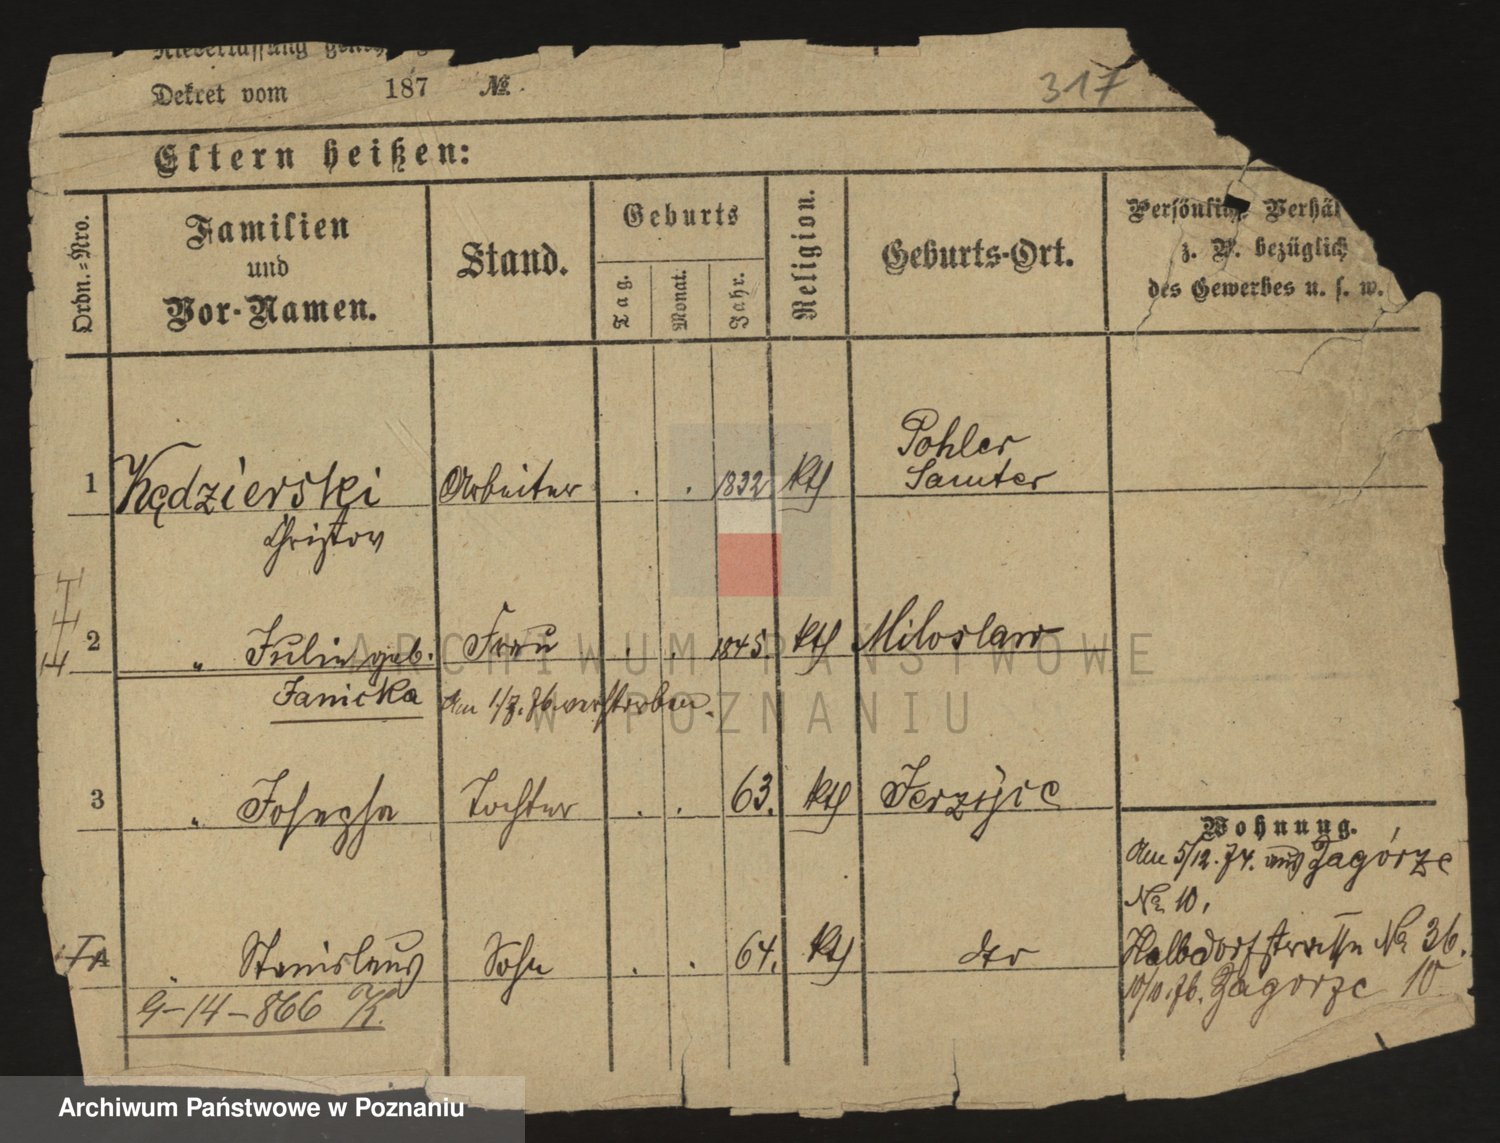 Niederlassung
Dekret vom 187 №.
317
Eltern heißen:
Ordn.-Nro.
Familien und Vor-Namen.
Stand.
Geburts
Tag.
Monat.
Jahr.
Religion.
Geburts-Ort.
Persönliche Verhäl
z. B. bezüglich
des Gewerbes u. s. w.
Pohler
1 Kędzierski Arbeiter . . 1832 kth Samter
Christov
2 " Julia geb. Frau . . 1845. kth Miloslaw
Janicka Am 1/7. 76. verstorben.
3 " Josepha Tochter . . 63. kth Jerzyce
Wohnung.
Am 5/12. 74. aus Zagórze
No 10.
4 " Stanislaus Sohn . . 64. kth dto
Halbdorfstrasse No 36.
10/10. 76. Zagorze 10
9-14-866 K.
ARCHIWUM PAŃSTWOWE
W POZNANIU
Archiwum Państwowe w Poznaniu